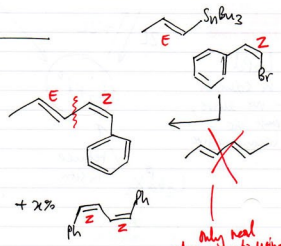 SnBu3
E
Z
Br
E
Z
+ x%
Ph
Z
Z
Ph
only real